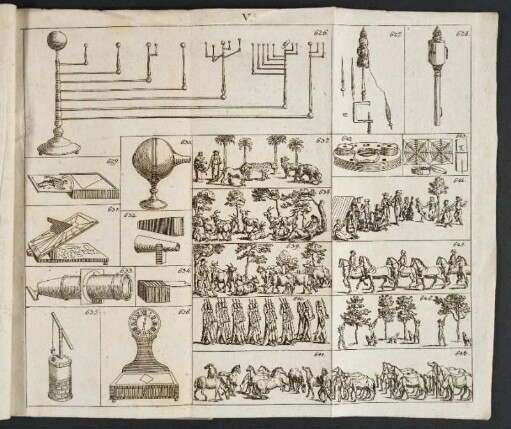 V.
626.
627.
628.
629.
630.
637.
642.
643.
631.
632.
638.
644.
633.
634.
639.
645.
635.
636.
640.
646.
641.